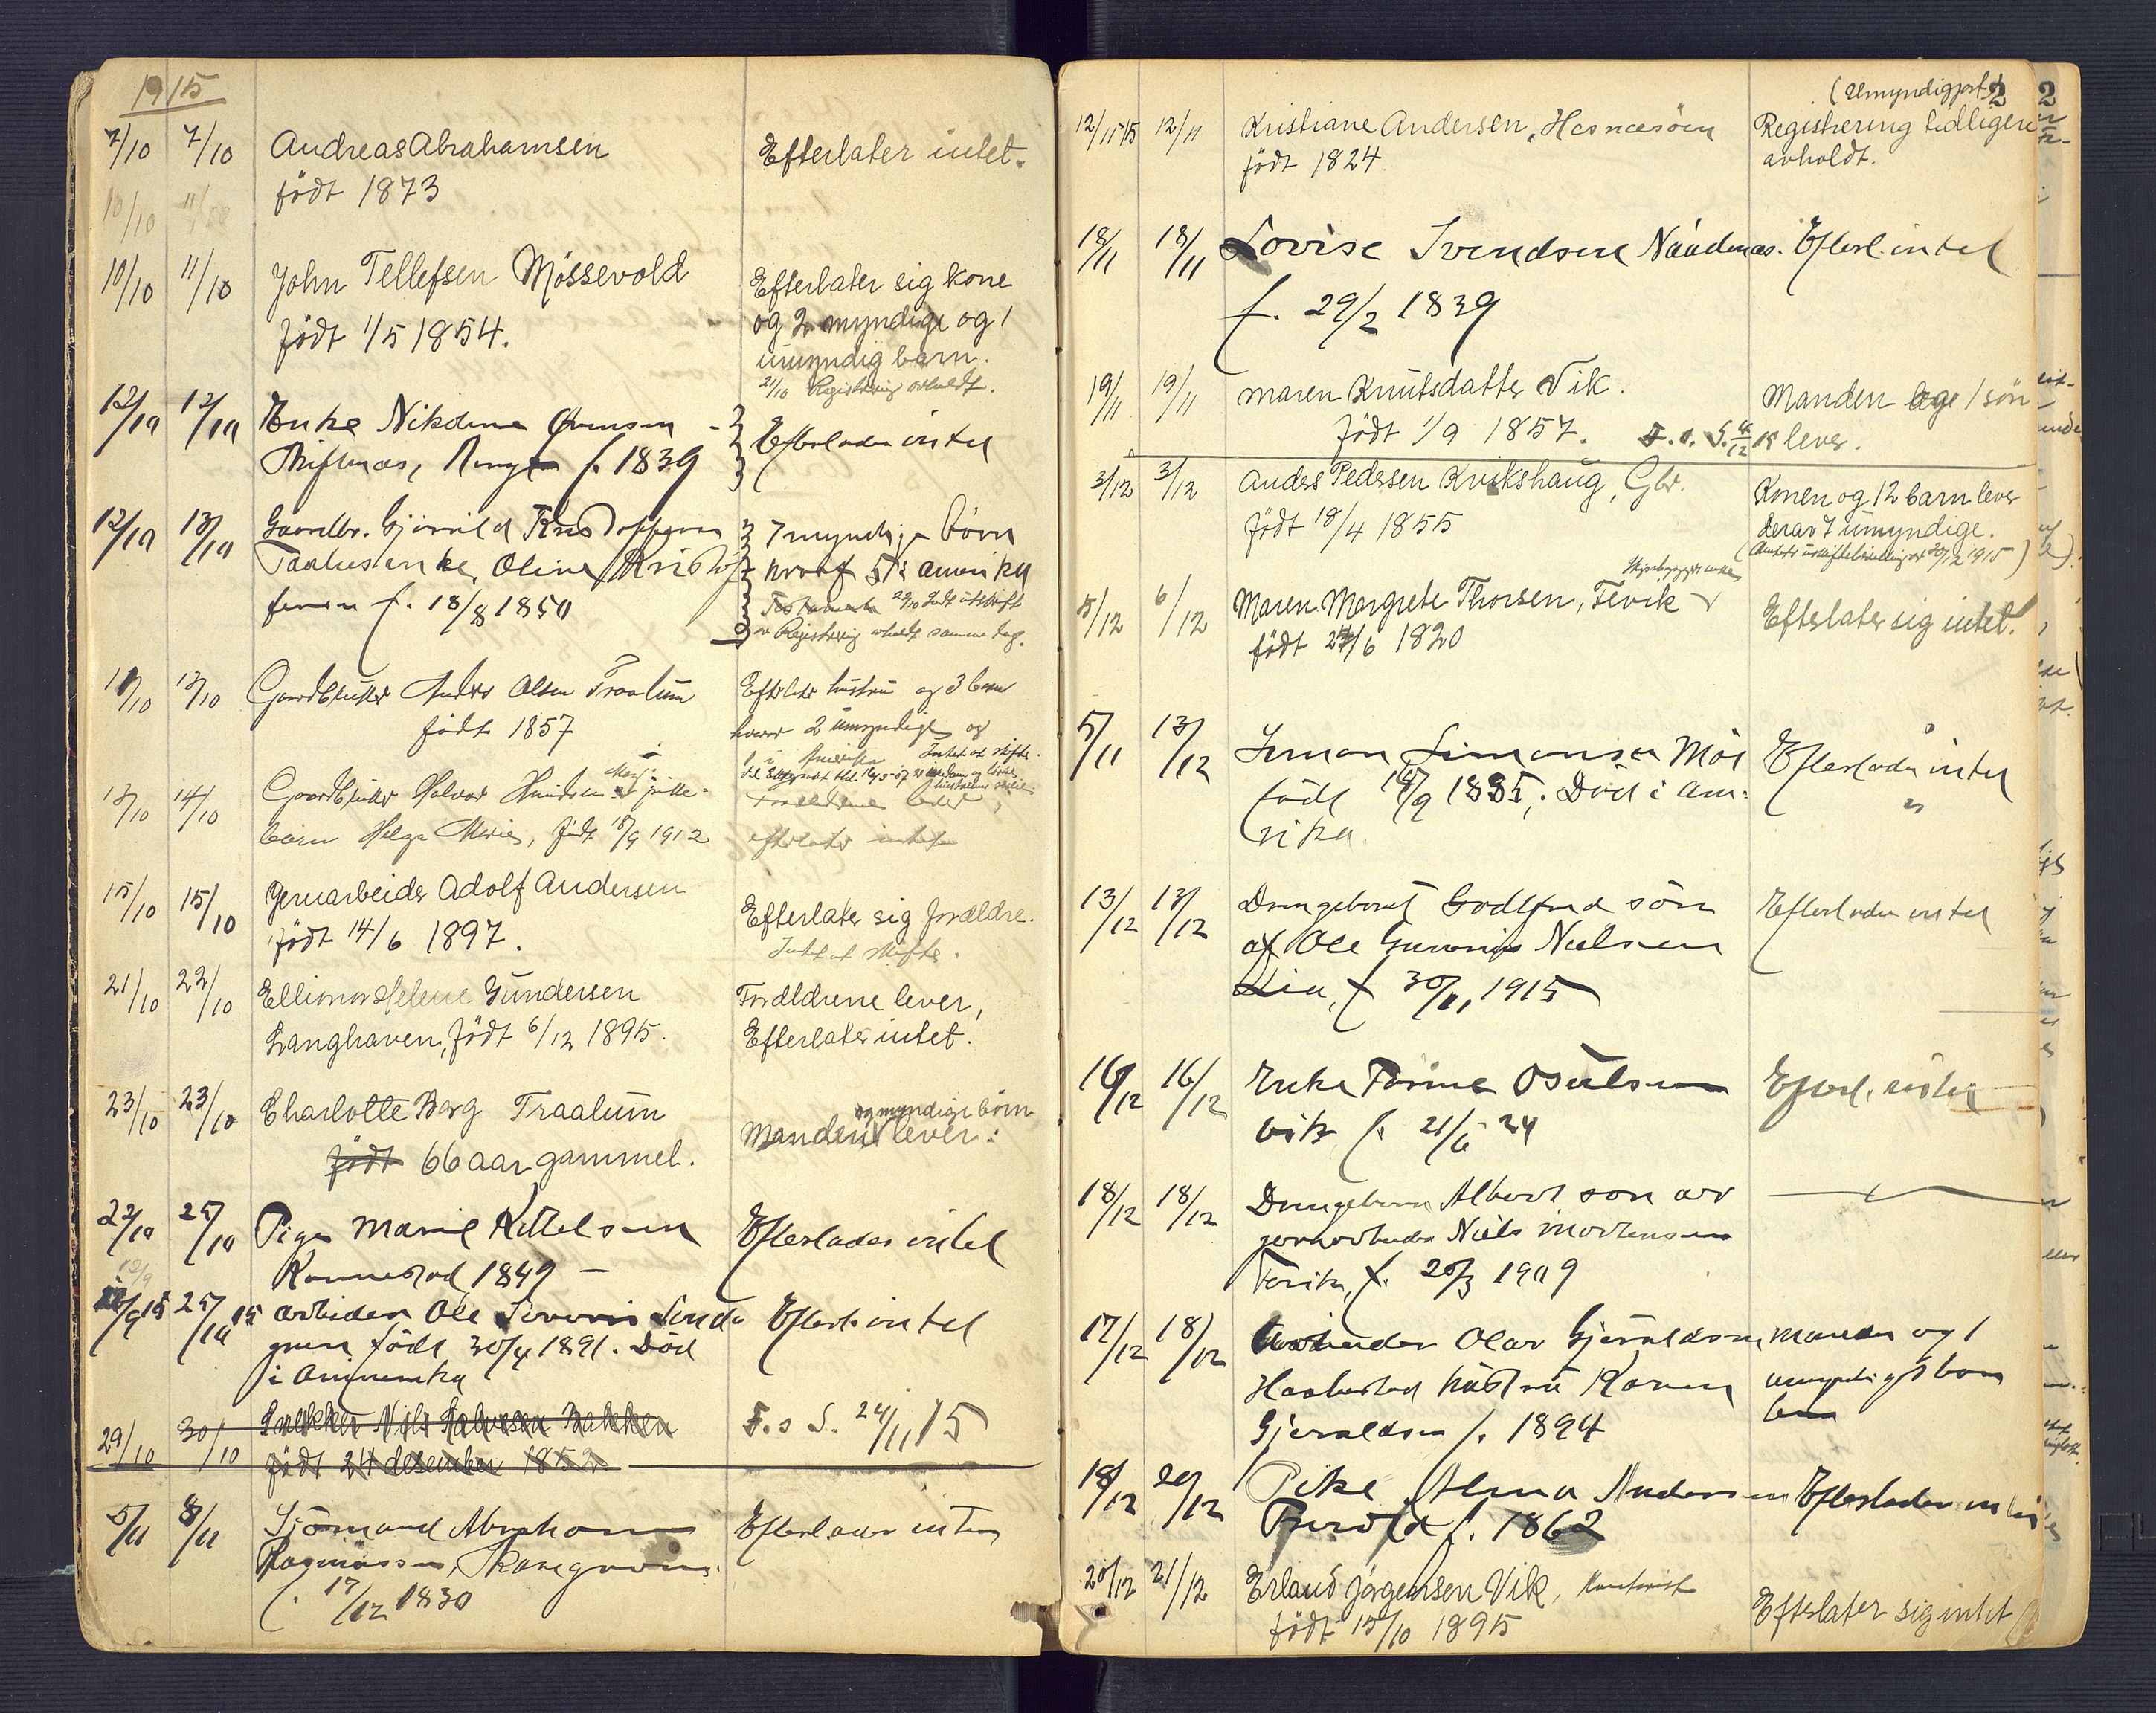 1915
7/10 7/10 Andreas Abrahamsen Efterlater intet.
født 1873
10/10
10/10 11/10 John Tellefsen Møssevold Efterlater sig kone
født 1/5 1854. og 2 myndige og 1
umyndig barn.
21/10 Registrering avholdt.
12/10 12/10 Enke Nikoline
f. 1839 Efterlader intet
12/10 13/10 Gaardbr. 7 myndige børn
Taalums enke, Oline Kristof- hvoraf 5 i Amerika
fersen f. 18/8 1850
Registrering avholdt samme dag.
11/10 13/10 Gaardbruker Anders Olsen Traalum Efterlater hustru og 3 barn
født 1857 hvorav 2 umyndige og
1 i Amerika Intet at skifte.
13/10 14/10 Gaardbruker Halvor Knudsen pike-
barn Helga Marie, født 18/9 1912 efterlater intet
15/10 15/10 Jernarbeider Adolf Andersen Efterlater sig forældre.
født 14/6 1897. Intet at skifte.
21/10 22/10 Ellionor Helene Gundersen Forældrene lever,
Langhaven, født 6/12 1895. Efterlater intet.
23/10 23/10 Charlotte Berg Traalum og myndige børn
Manden lever.
født 66 aar gammel.
22/10 25/10 Pige Marie Kittelsen Efterlader intet
1849 —
25/10 15 Arbeider Ole Efterl. intet
født 30/4 1891. Død
i Amerika
29/10 30/10 Snekker Nils Halvorsen Bakken F. s S. 24/11 15
født 24 desember 185
5/11 8/11 Sjømand Abraham Efterlader intet
f. 17/12 1830
(Umyndigprot.) 2
12/11 15 12/11 Kristiane Andersen, Hesnesøen Registrering tidligere
født 1824 avholdt.
18/11 18/11 Lovise Svendsen Naadenes. Efterl. intet
f. 29/2 1839
19/11 19/11 Maren Knutsdatter Vik. Manden og 1 søn
født 1/9 1857. F. s. S. 4/12 15 lever.
3/12 3/12 Anders Pedersen Krikshaug, Gbr. Konen og 12 barn lever
født 18/4 1855 derav 7 umyndige.
5/12 6/12 Maren Margrete Thorsen, Fevik Efterlater sig intet.
født 24/6 1820
5/11 13/12 Simon Simonsen Møl Efterlader intet
født 17/9 1885, Død i Ame-
rika
13/12 13/12 Drengebarnet Godtfred søn Efterlader intet
af Ole Gunerius Nielsen
Lia, f 30/11 1915
16/12 16/12 Enke Torine Osulsen Efterl. intet
Vik f. 21/6 24
18/12 18/12 Drengebarn Albert søn av —
jernarbeider Niels Mortensen
Fevik, f. 20/3 1909
17/12 18/12 Arbeider Olav Gjeruldsen Manden og 1
Haabestad hustru Karen umyndigt barn
Gjeruldsen f. 1894
18/12 20/12 Pike Alma Andersen Efterlader intet
f. 1862
20/12 21/12 Erland Jørgensen Vik, Kontorist Efterlater sig intet
født 15/10 1895